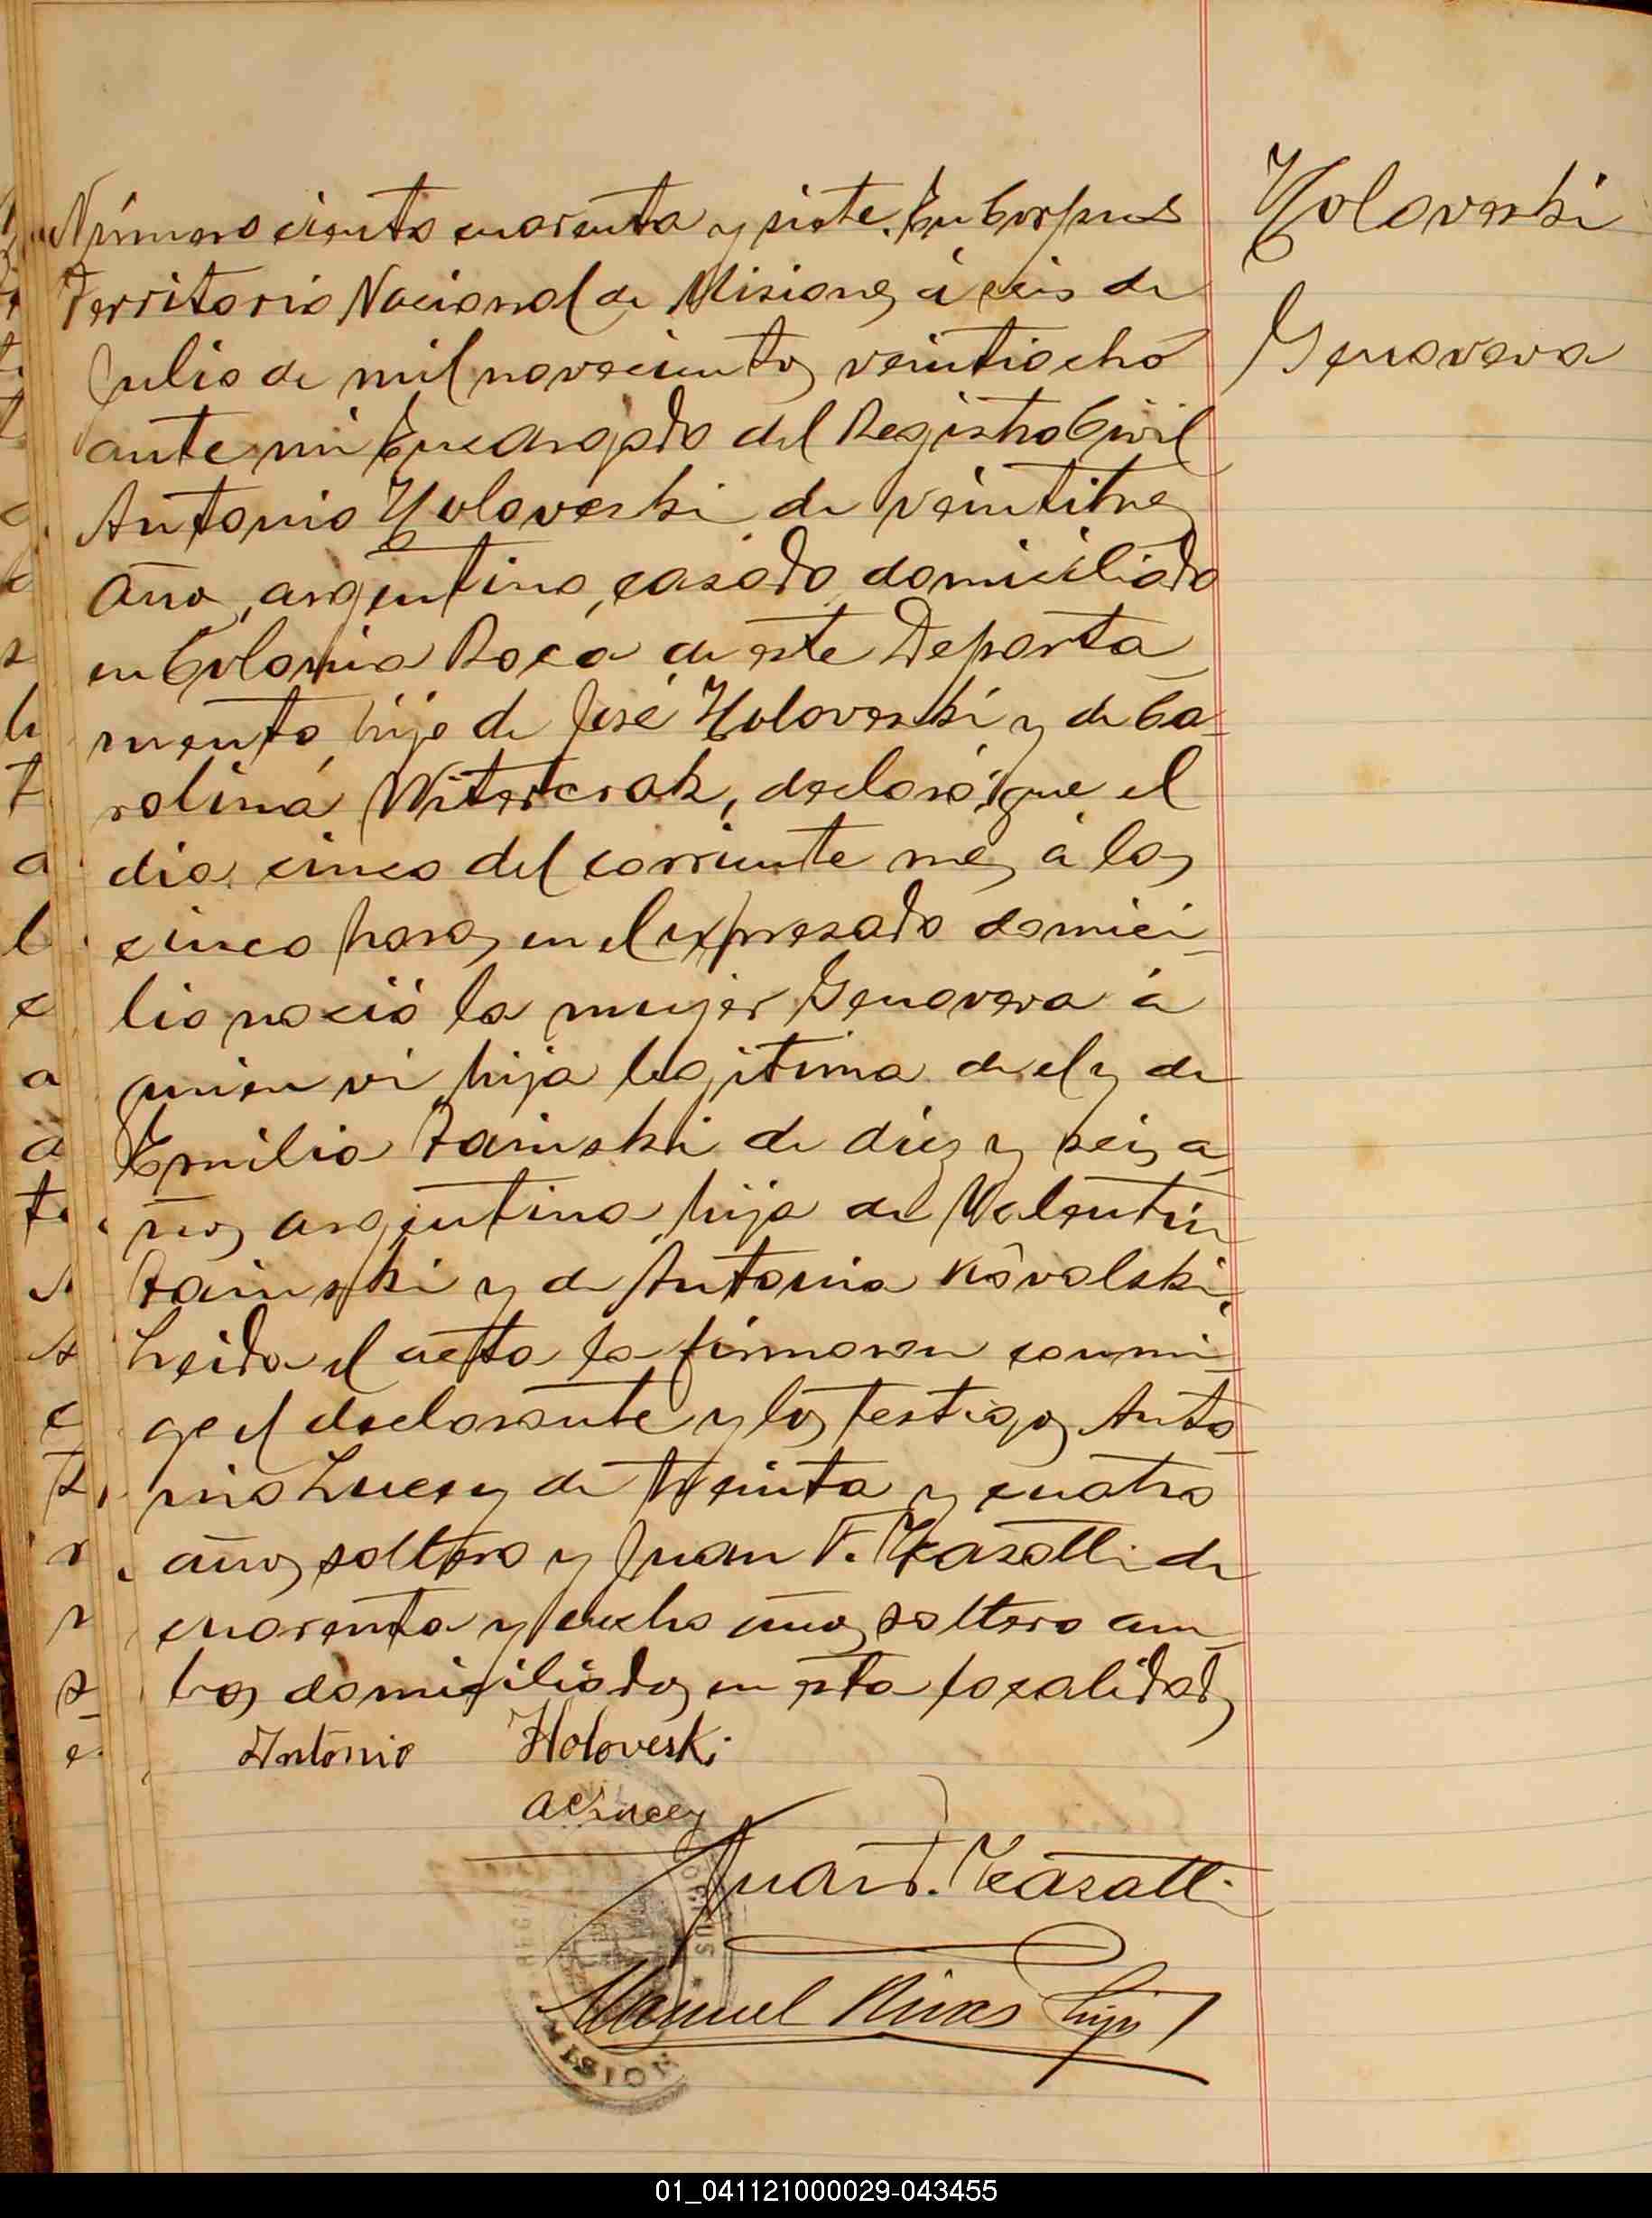 Holoveski
Genoveva
Número ciento cuarenta y siete. En Corpus
Territorio Nacional de Misiones, á seis de
Julio de mil novecientos veintiocho
ante mi Encargado del Registro Civil
Antonio Holoveski de veintitres
años, argentino, casado, domiciliado
en Colonia Roca de este Departa
mento, hijo de José Holoveski y de Ca-
rolina Witercrak, declaró: que el
dia cinco del corriente mes á las
cinco horas en el expresado domici-
lio nació la mujer Genoveva á
quien vi hija legitima de el y de
Emilia Zainski de diez y seis a
ños argentina hija de Valentin
Zainski y de Antonia Kovalski.
Leida el acta la firmaron conmi-
go el declarante y los testigos Anto-
nio Lucey de treinta y cuatro
años soltero y Juan F. Kasatti de
cuarenta y ocho años soltero am-
bos domiciliados en esta localidad,
Antonio Holoveski
A Lucey
Juan F. Kasatti
Manuel Rivas hijo
CORPUS
MISION
01_041121000029-043455